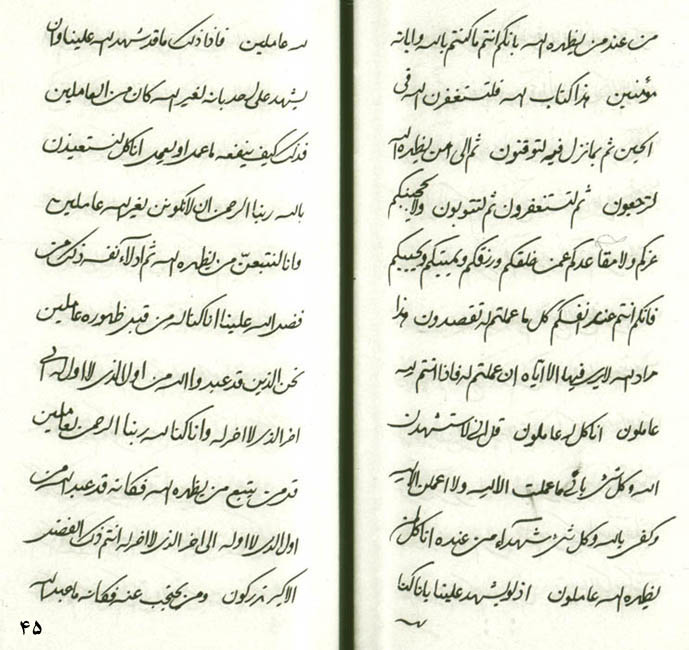 من عند من يظهره الله بانكم انتم ما كنتم بالله واياته
مؤمنين هذا كتاب الله فلتستغفرن الله في
الحين ثم بما نزل فيه لتوقنون ثم الى من يظهره الله
لترجعون ثم لتستغفرون ثم لتتوبون ولا يحجبنكم
عزكم ولا مقاعدكم عمن خلقكم ورزقكم ويميتكم ويحييكم
فانكم انتم عند انفسكم كل ما عملتم له تقصدون هذا
مراد الله لا يرى فيها الا اياه ان عملتم له فاذا انتم لله
عاملون انا كل له عاملون قل اني لاستشهدن
الله وكل شئ باني ما عملت الا لله ولا اعملن الا لله
وكفى بالله وكل شئ شهداء من عنده انا كل لمن
يظهره الله عاملون اذ لو يشهد علينا بانا كنا
لله عاملين فاذا ذلك ما قد شهد الله علينا وان
يشهد على احد بانه لغير الله كان من العاملين
فذلك كيف ينفعه ما عمل او يعمل انا كل لنستعيذن
بالله ربنا الرحمن ان لا نكونن لغير الله عاملين
وانا لنتبعن من يظهره الله ثم ادلاء نفسه ذلك من
فضل الله علينا انا كنا له من قبل ظهوره عاملين
نحن الذين قد عبدوا الله من اول الذي لا اول له الى
اخر الذي لا اخر له وانا كنا لله ربنا الرحمن لعاملين
قل من يتبع من يظهره الله فكانه قد عبد الله من
اول الذي لا اول له الى اخر الذي لا اخر له انتم ذلك الفضل
الاكبر تدركون ومن يحتجب عنه فكانه ما عبد الله
۴۵